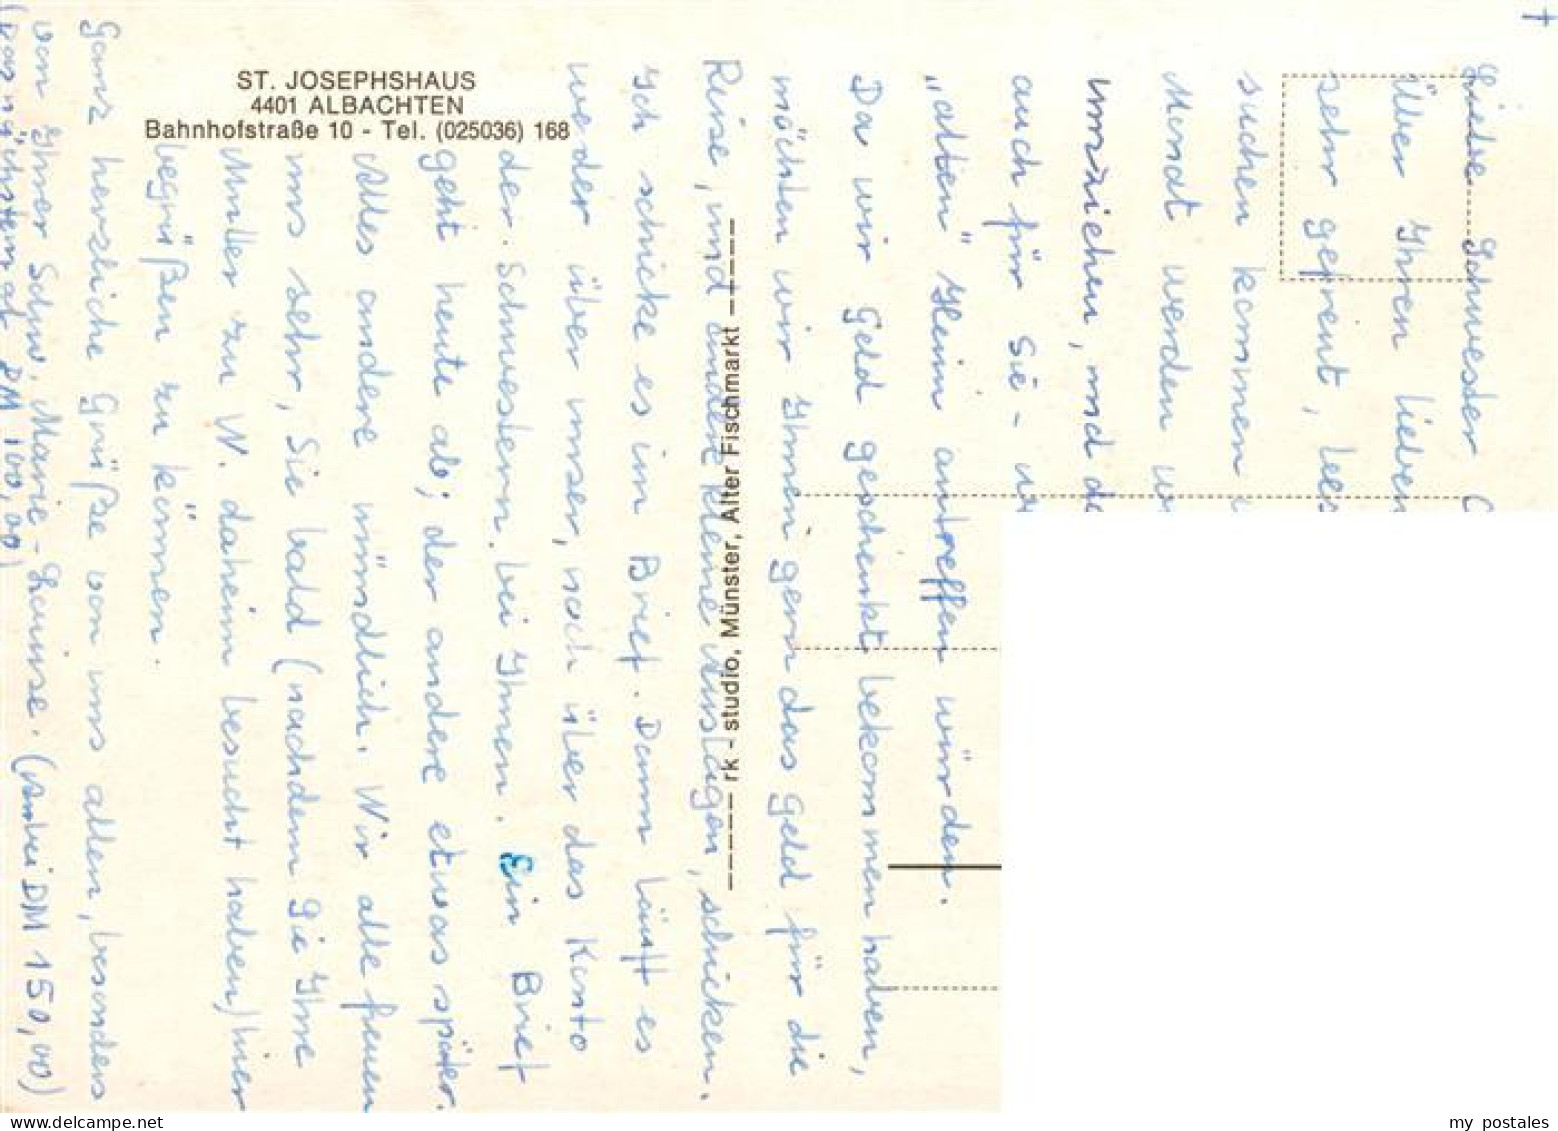 †
Liebe Schwester
Über Ihren lieben
sehr gefreut,
suchen kommen
Monat werden
umziehen, und
auch für Sie -
"alten" Heim antreffen würden.
Da wir Geld geschenkt bekommen haben,
möchten wir Ihnen gern das Geld für die
Reise, und andere kleine Auslagen, schicken.
Ich schicke es im Brief. Dann läuft es
weder über unser, noch über das Konto
der Schwestern bei Ihnen. Ein Brief
geht heute ab; der andere etwas später.
Alles andere mündlich. Wir alle freuen
uns sehr, Sie bald (nachdem Sie Ihre
Mutter zu W. daheim besucht haben) hier
begrüßen zu können.
Ganz herzliche Grüße von uns allen, besonders
von Ihrer Schw. Marie-Louise. (Anbei DM 150,00)
(Das nächstemal DM 100,00)
ST. JOSEPHSHAUS
4401 ALBACHTEN
Bahnhofstraße 10 - Tel. (025036) 168
rk - studio, Münster, Alter Fischmarkt
my postales